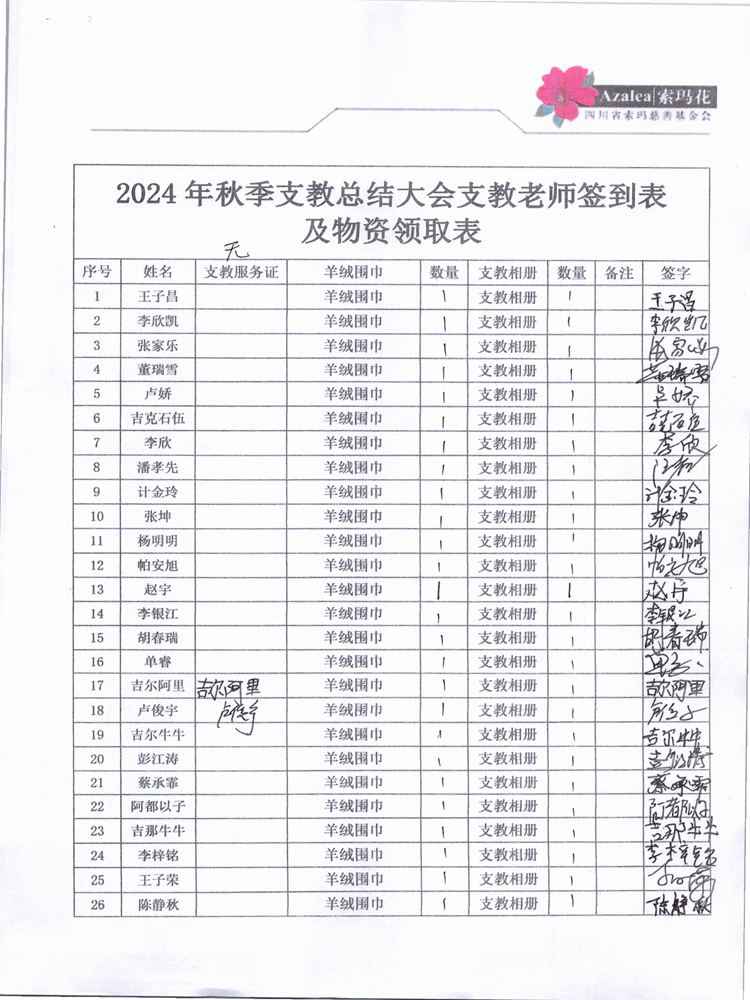 Azalea 索玛花
四川省索玛慈善基金会
2024 年秋季支教总结大会支教老师签到表
及物资领取表
无
序号 姓名 支教服务证 羊绒围巾 数量 支教相册 数量 备注 签字
1 王子昌 羊绒围巾 1 支教相册 1 王子昌
2 李欣凯 羊绒围巾 1 支教相册 1 李欣凯
3 张家乐 羊绒围巾 1 支教相册 1
4 董瑞雪 羊绒围巾 1 支教相册 1 董瑞雪
5 卢娇 羊绒围巾 1 支教相册 1
6 吉克石伍 羊绒围巾 1 支教相册 1
7 李欣 羊绒围巾 1 支教相册 1 李欣
8 潘孝先 羊绒围巾 1 支教相册 1
9 计金玲 羊绒围巾 1 支教相册 1 计金玲
10 张坤 羊绒围巾 1 支教相册 1 张坤
11 杨明明 羊绒围巾 1 支教相册 1 杨明明
12 帕安旭 羊绒围巾 1 支教相册 1 帕安旭
13 赵宇 羊绒围巾 1 支教相册 1 赵宇
14 李银江 羊绒围巾 1 支教相册 1 李银江
15 胡春瑞 羊绒围巾 1 支教相册 1 胡春瑞
16 单睿 羊绒围巾 1 支教相册 1
17 吉尔阿里 吉尔阿里 羊绒围巾 1 支教相册 1 吉尔阿里
18 卢俊宇 卢俊宇 羊绒围巾 1 支教相册 1
19 吉尔牛牛 羊绒围巾 1 支教相册 1 吉尔牛牛
20 彭江涛 羊绒围巾 1 支教相册 1
21 蔡承霏 羊绒围巾 1 支教相册 1 蔡承霏
22 阿都以子 羊绒围巾 1 支教相册 1 阿都以子
23 吉那牛牛 羊绒围巾 1 支教相册 1 吉那牛牛
24 李梓铭 羊绒围巾 1 支教相册 1 李梓铭
25 王子荣 羊绒围巾 1 支教相册 1
26 陈静秋 羊绒围巾 1 支教相册 1 陈静秋